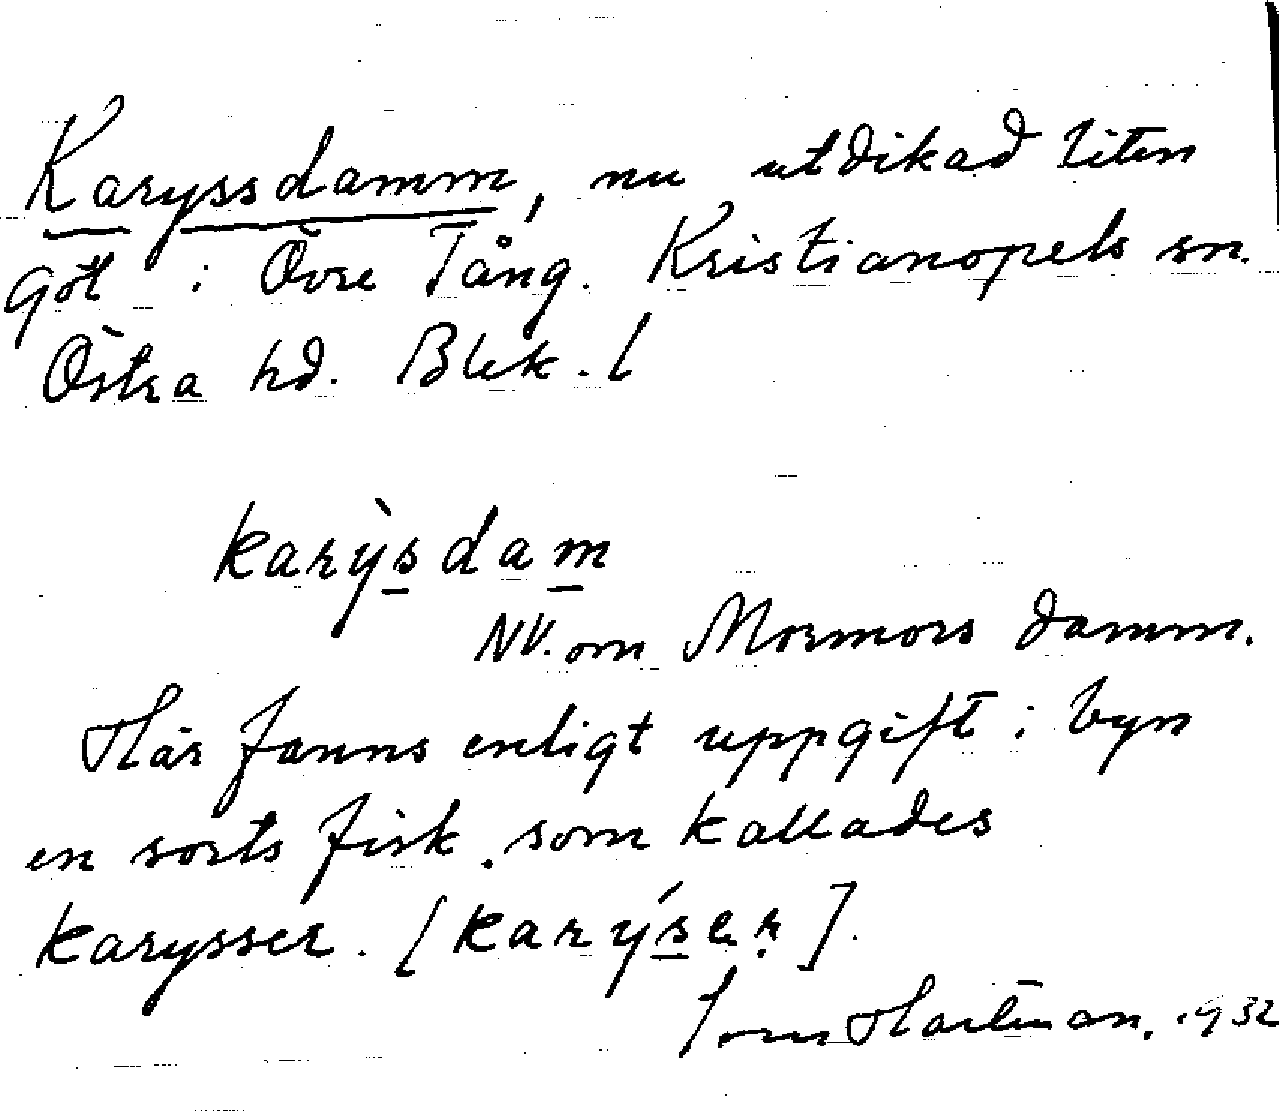 Karyssdamm, nu utdikad liten
göl i Övre Tång. Kristianopels sn.
Östra hd. Blek. l
karỳsdam
NV. om Mormors damm.
Här fanns enligt uppgift i byn
en sorts fisk som kallades
karysser. [karýser].
Hartman, 1932